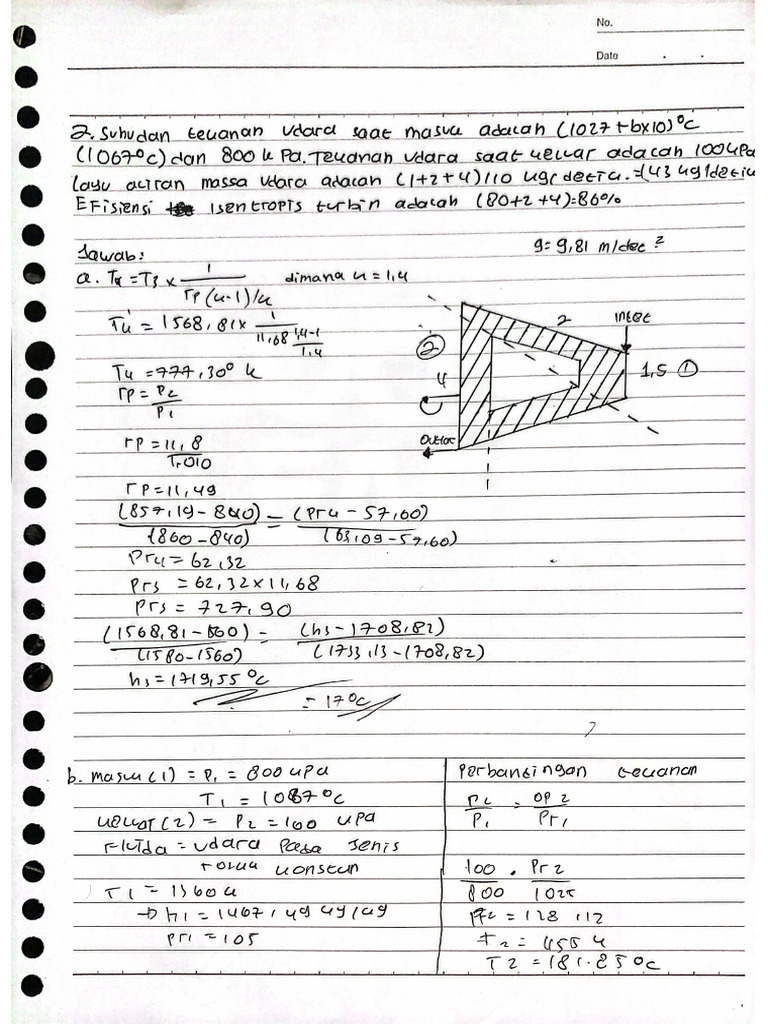 No.
Date
2. Suhudan teuanan udara saat masuu adalah (1027+bx10)°C
(1067°C) dan 800 u Pa. Teuanan udara saat ueluar adalah 100 uPa
laju aliran massa udara adalah (1+2+4)/10 ug/detiu. = (43 ug/detiu
Efisiensi isentropis turbin adalah (80+2+4)=86%
Jawab:
g= 9,81 m/dec²
a. Tu = T3 x 1 / rp (u-1)/u dimana u = 1,4
Tu' = 1568,81x 1 / 11,68 1,4-1 / 1,4
Tu = 777,30° k
rp = P2 / P1
rp = 11,8 / 1,010
rp = 11,49
2
inlet
②
1,5 ①
4
Outlet
(857,19 - 840) / (860 - 840) = (Pr4 - 57,60) / (63,09 - 57,60)
Pr4 = 62,32
Pr3 = 62,32 x 11,68
Pr3 = 727,90
(1568,81 - 1560) / (1580 - 1560) = (h3 - 1708,82) / (1733,13 - 1708,82)
h3 = 1719,55 °C
= 17°C
b. masuu (1) = P1 = 800 uPa
T1 = 1087°C
ueluar (2) = P2 = 100 uPa
Fluida = udara Pada Jenis
uonstan
T1 = 1360 u
→ h1 = 1467,49 ug/ug
Pr1 = 105
Perbandingan teuanan
P2 / P1 = OP2 / Pr1
100 / 800 . Pr2 / 1025
P2 = 128,12
T2 = 455 4
T2 = 181.85°C